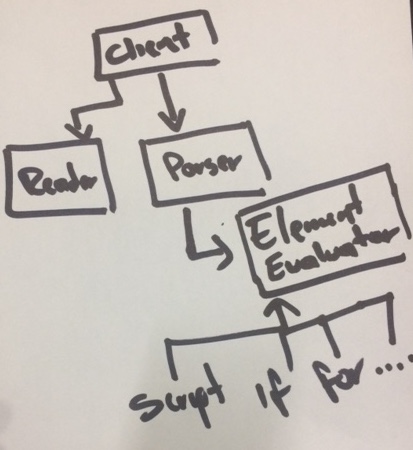 Client
Reader
Parser
Element
Evaluator
Script If for ....